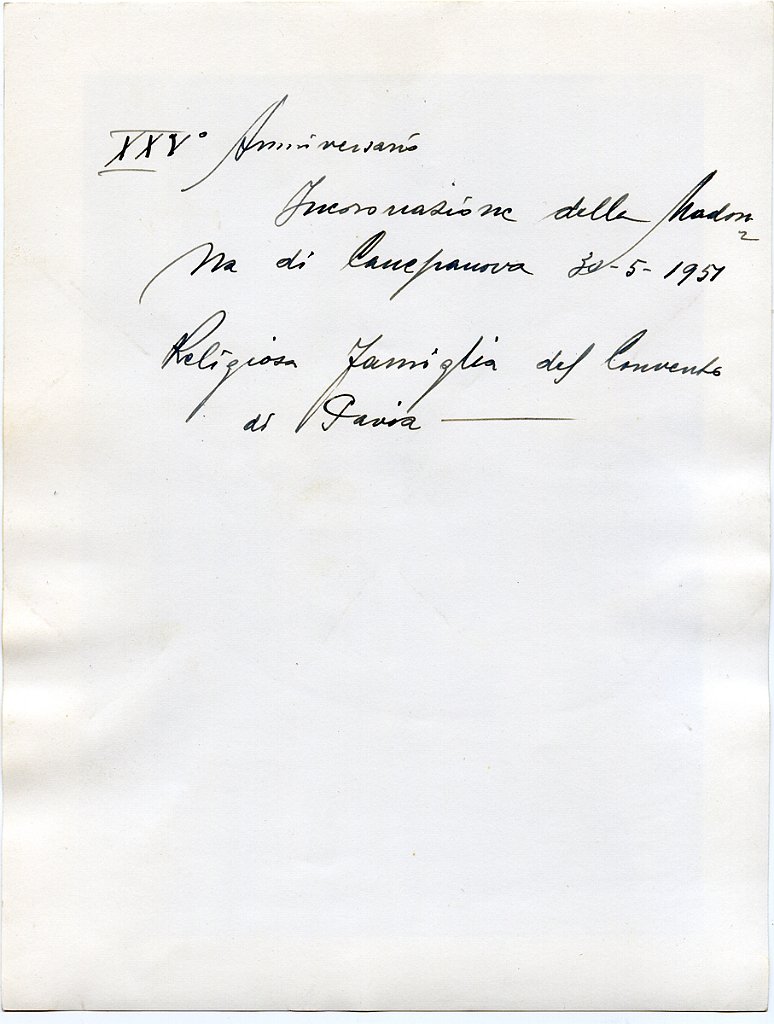 XXV° Anniversario
Incoronazione della Madon=
na di Canepanova 30-5-1951
Religiosa Famiglia del Convento
di Pavia